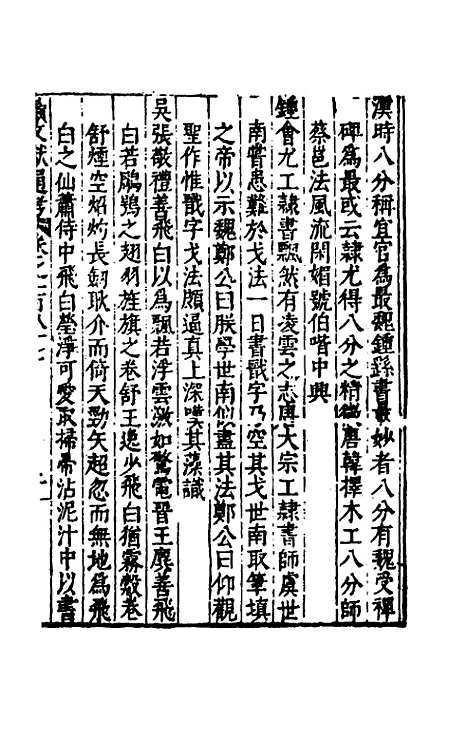 漢時八分稱宜官為最魏鍾繇書最妙者八分有魏受禪
碑為最或云隸尤得八分之精微唐韓擇木工八分師
蔡邕法風流閑媚號伯喈中興
鍾會尤工隸書飄然有凌雲之志唐大宗工隸書師虞世
南嘗患難於戈法一日書戩字乃空其戈世南取筆填
之帝以示魏鄭公曰朕學世南似盡其法鄭公曰仰觀
聖作惟戩字戈法頗逼真上深嘆其藻識
吳張敬禮善飛白以為飄若浮雲激如驚電晉王廙善飛
白若鵰鶚之翅羽旌旗之卷舒王逸少飛白猶霧縠卷
舒煙空焰灼長劒耿介而倚天勁矢超忽而無地為飛
白之仙蕭侍中飛白瑩淨可愛取掃帚沾泥汁中以書
文獻通考卷之一百八十七